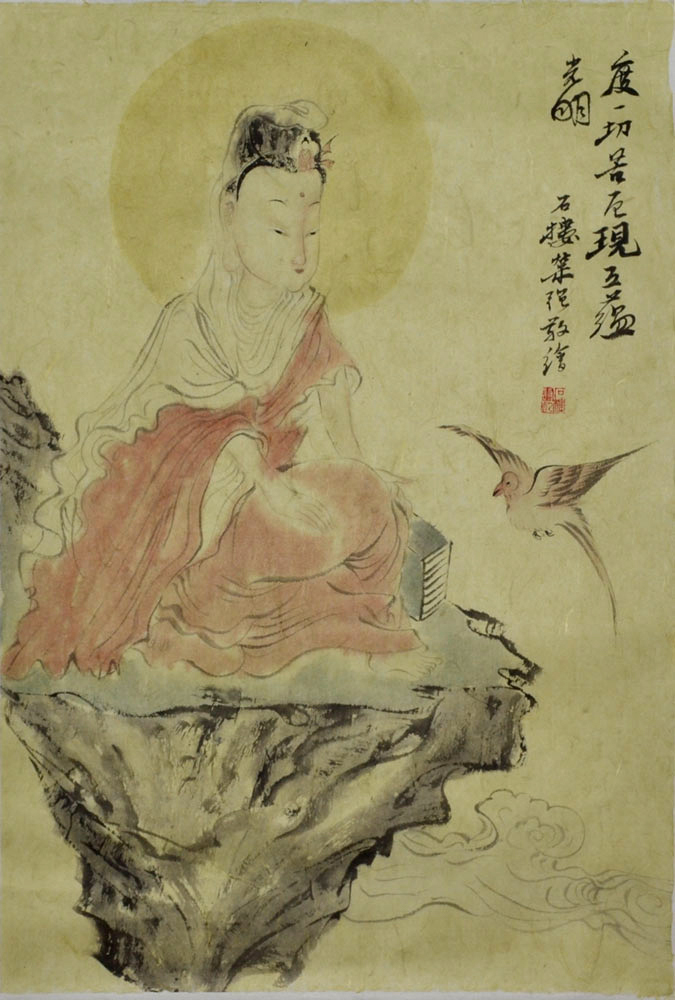 度一切苦厄現五蘊
光明
石樓葉強敬繪